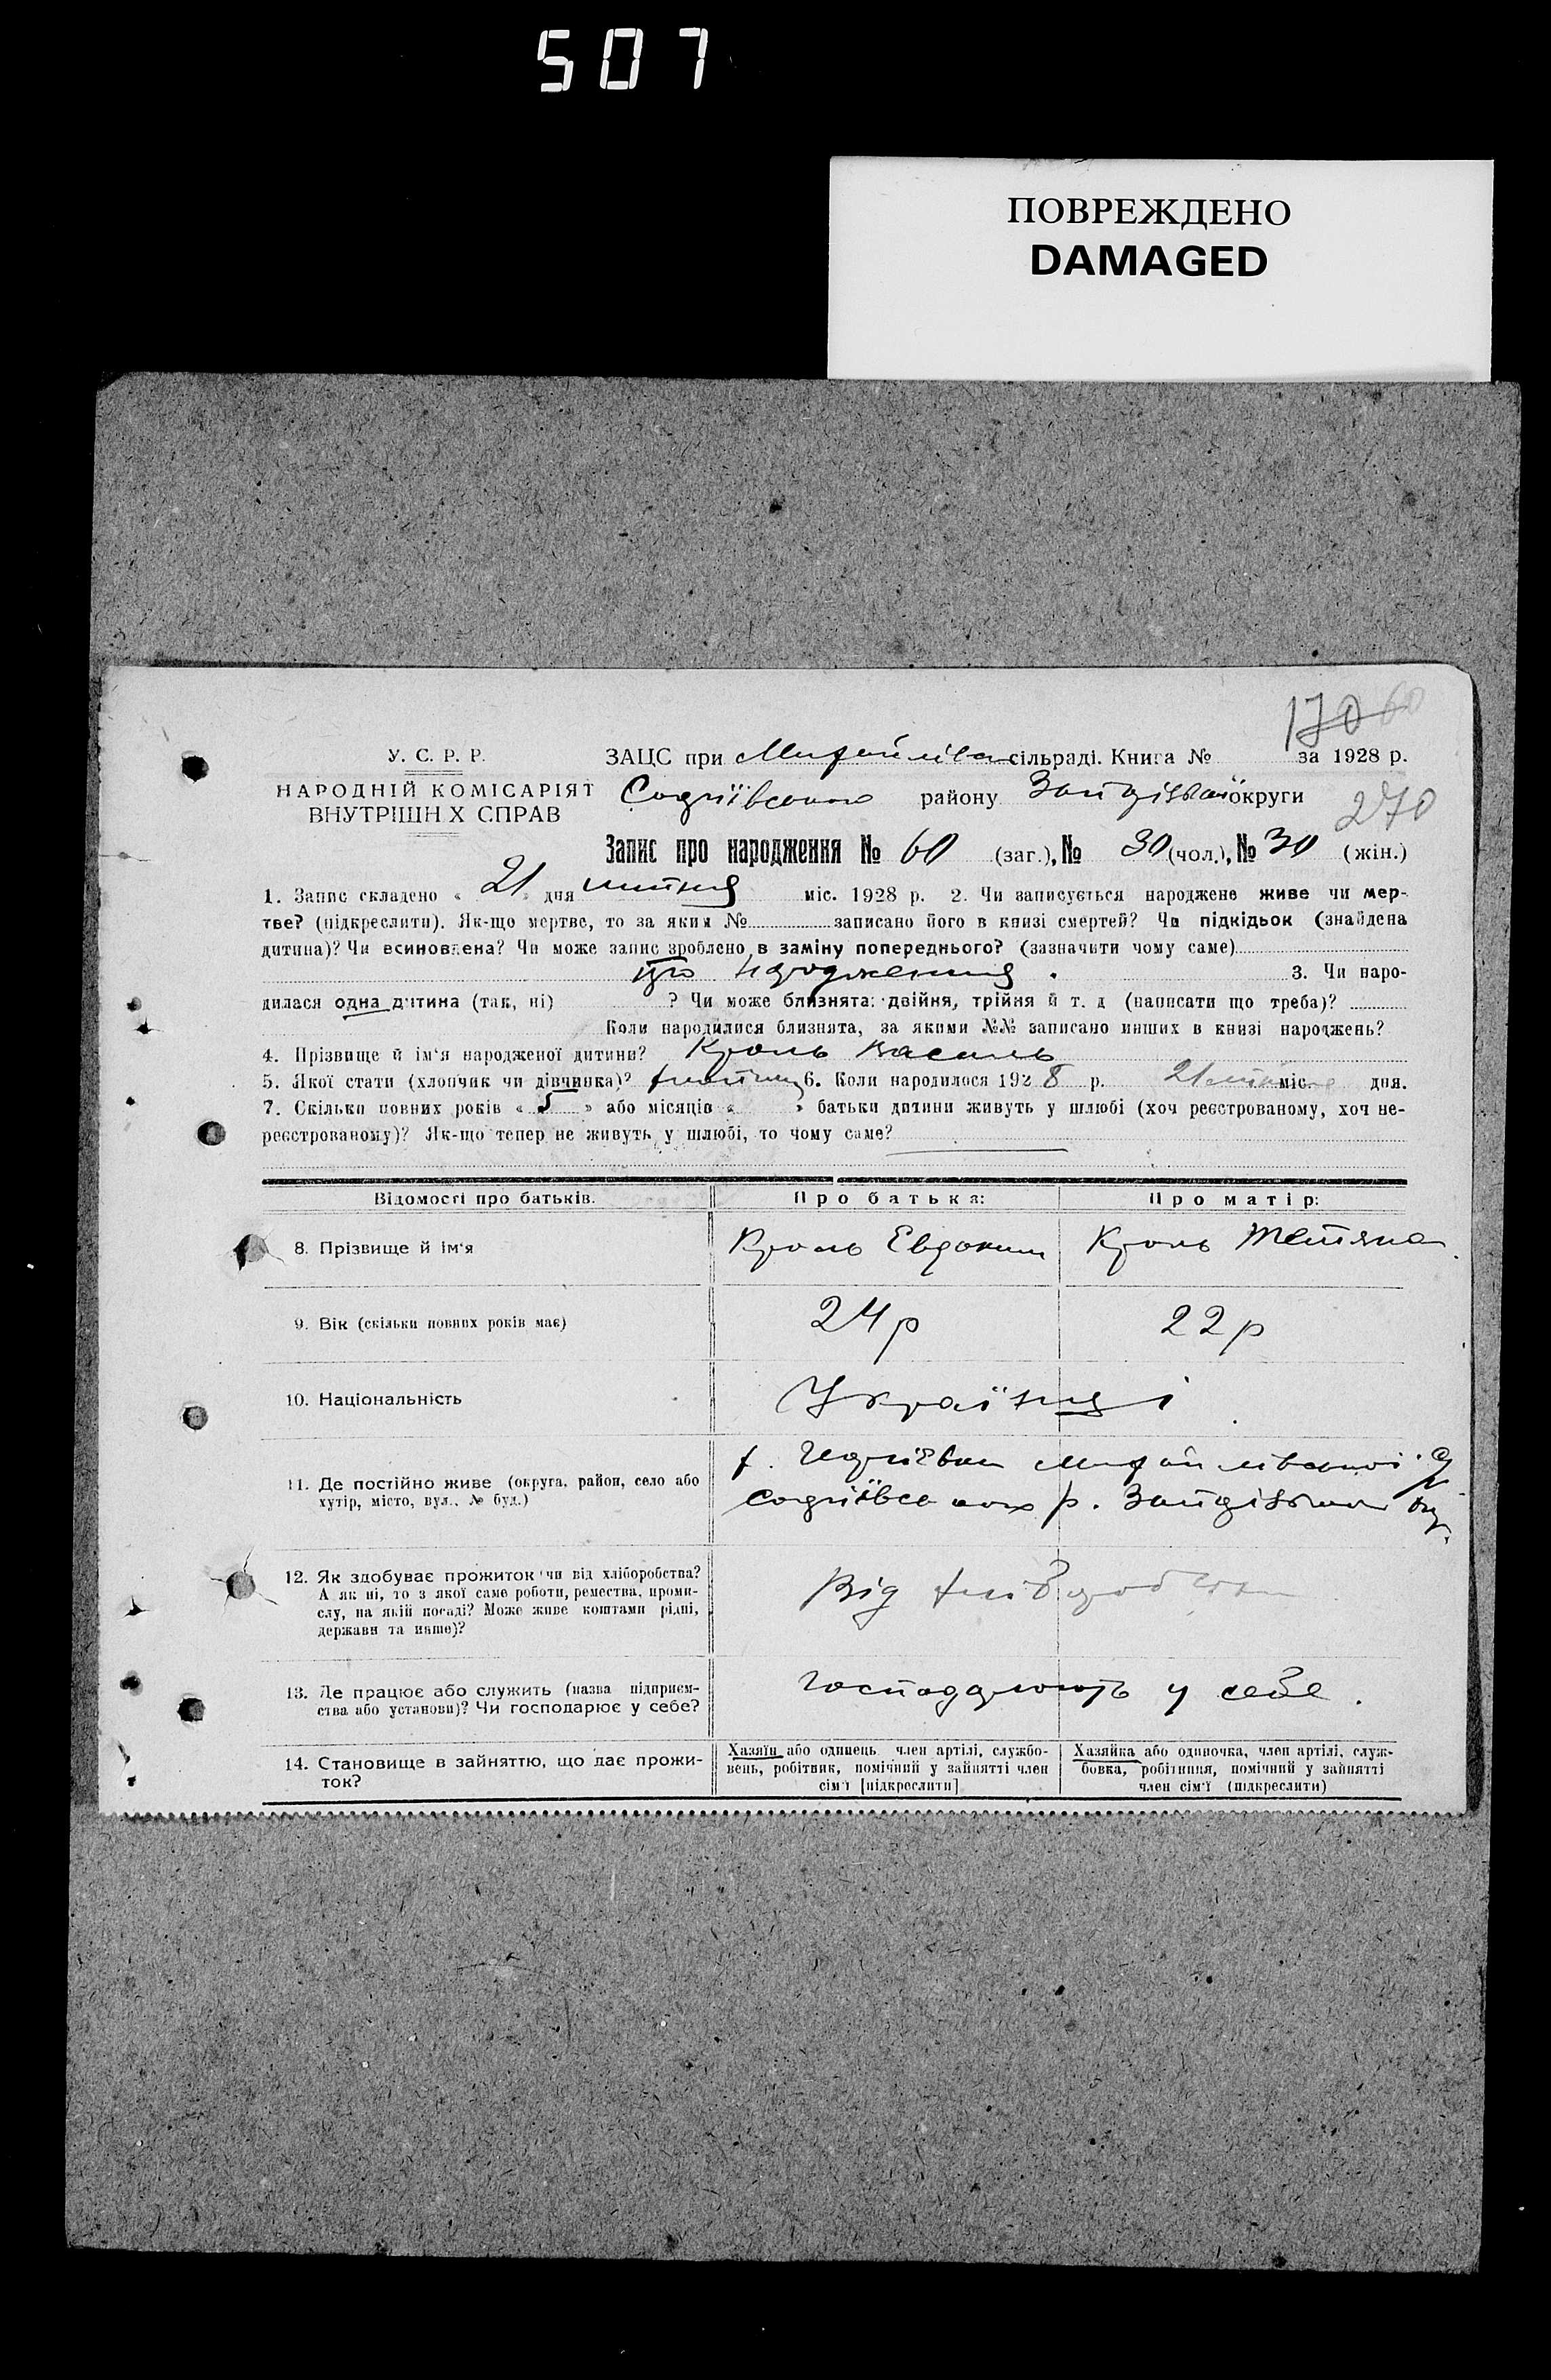 507
ПОВРЕЖДЕНО
DAMAGED
170 60
У. С. Р. Р.
ЗАЦС при сільраді. Книга № за 1928 р.
НАРОДНІЙ КОМІСАРІЯТ
ВНУТРІШН Х СПРАВ
Софіївського району округи
270
Запис про народження № 60 (заг.), № 30 (чол.), № 30 (жін.)
1. Запис складено « 21 » дня міс. 1928 р. 2. Чи записується народжене живе чи мер-
тве? (підкреслити). Як-що мертве, то за яким № записано його в книзі смертей? Чи підкідьок (знайдена
дитина)? Чи всиновлена? Чи може запис зроблено в заміну попереднього? (зазначити чому саме)
про народження. 3. Чи наро-
дилася одна дитина (так, ні) ? Чи може близнята: двійня, трійня й т. д (написати що треба)?
Коли народилися близнята, за якими №№ записано инших в книзі народжень?
4. Прізвище й ім'я народженої дитини? Кроль Василь
5. Якої стати (хлопчик чи дівчинка)? 6. Коли народилося 1928 р. 21 міс. дня.
7. Скільки повних років « 5 » або місяців « » батьки дитини живуть у шлюбі (хоч реєстрованому, хоч не-
реєстрованому)? Як-що тепер не живуть у шлюбі, то чому саме?
Відомості про батьків. Про батька: Про матір:
8. Прізвище й ім'я Кроль Евдоким Кроль Тетяна
9. Вік (скільки повних років має) 24 р 22 р
10. Національність Українці
11. Де постійно живе (округа, район, село або
хутір, місто, вул., № буд.)
12. Як здобуває прожиток чи від хліборобства?
А як ні, то з якої саме роботи, ремества, проми-
слу, на якій посаді? Може живе коштами рідні,
держави та инше)?
Від хліборобства
13. Де працює або служить (назва підприєм-
ства або установи)? Чи господарює у себе?
господарюють у себе.
14. Становище в зайняттю, що дає прожи-
ток?
Хазяїн або одинець член артілі, службо-
вець, робітник, помічний у зайнятті член
сім'ї [підкреслити]
Хазяйка або одиночка, член артілі, служ-
бовка, робітниця, помічний у зайнятті
член сім'ї (підкреслити)